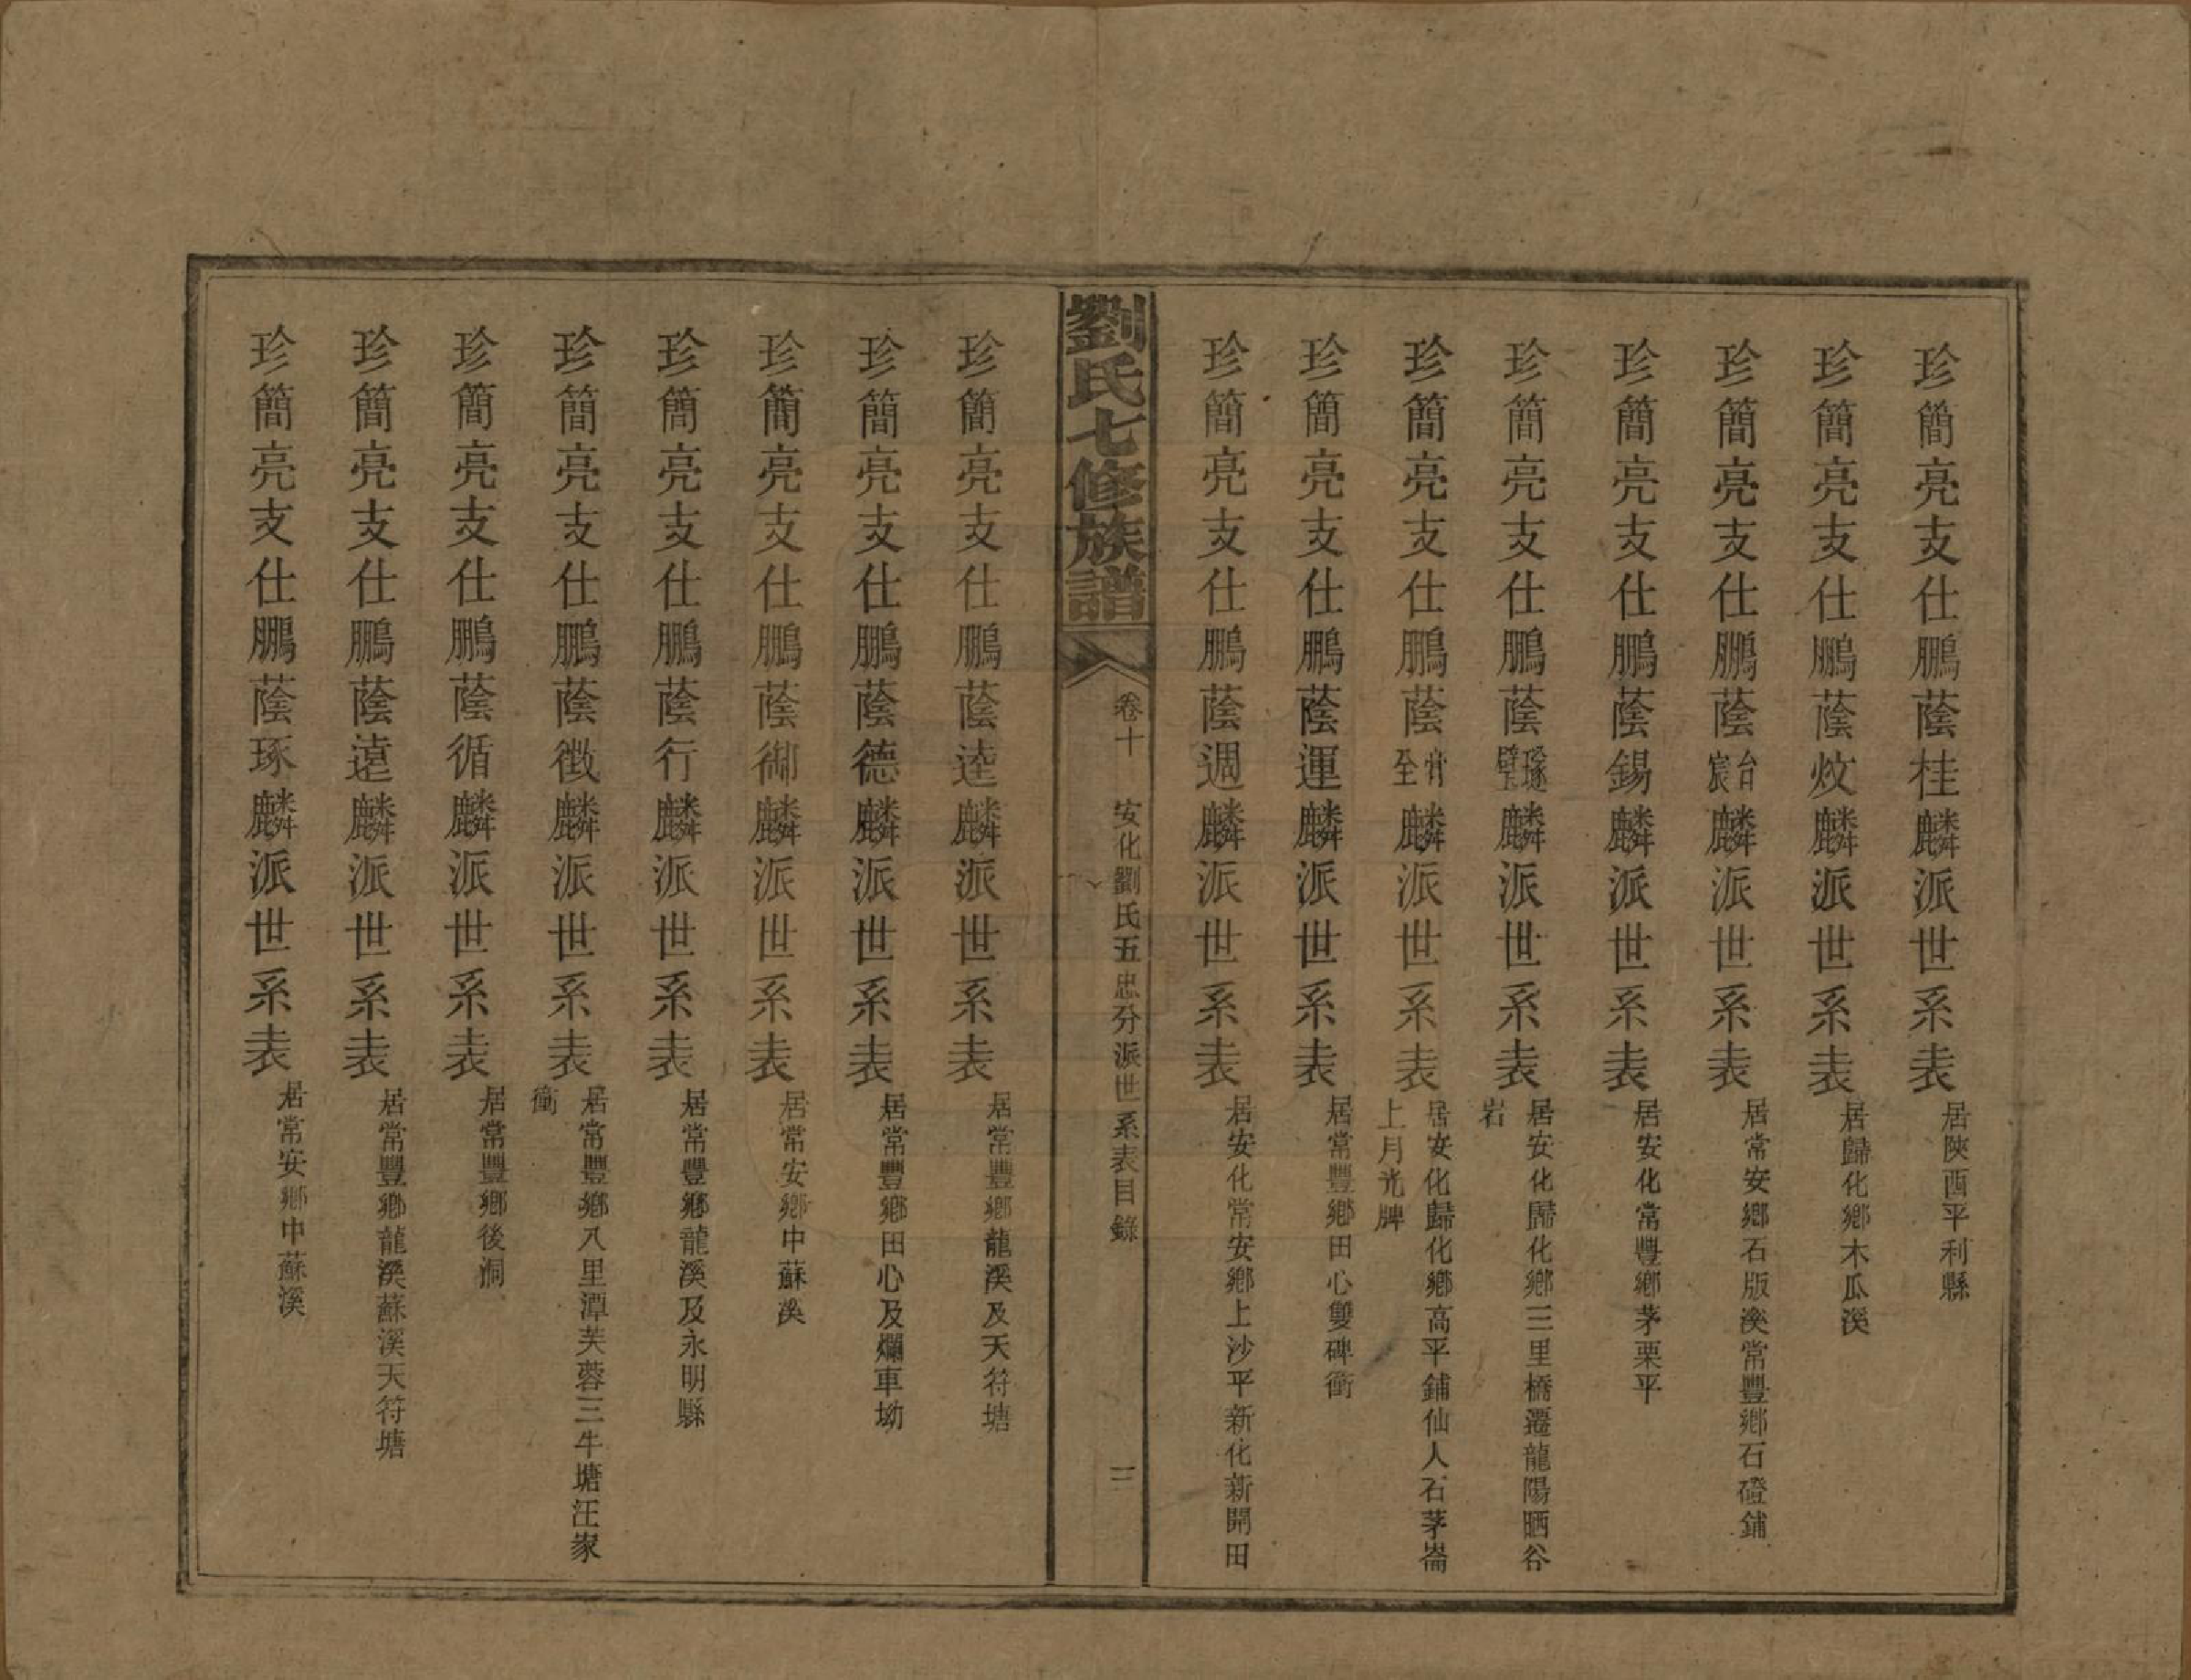 珍簡亮支仕鵬蔭桂麟派世系表 居陝酉平利縣
珍簡亮支仕鵬蔭炆麟派世系表 居歸化鄉木瓜溪
珍簡亮支仕鵬蔭台宸麟派世系表 居常安鄉石版溪常豐鄉石磴鋪
珍簡亮支仕鵬蔭錫麟派世系表 居安化常豐鄉茅栗平
珍簡亮支仕鵬蔭璲璧麟派世系表 居安化歸化鄉三里橋遷龍陽晒谷
岩
珍簡亮支仕鵬蔭膏至麟派世系表 居安化歸化鄉高平鋪仙人石茅崙
上月光牌
珍簡亮支仕鵬蔭運麟派世系表 居常豐鄉田心雙碑衝
珍簡亮支仕鵬蔭週麟派世系表 居安化常安鄉上沙平新化新開田
劉氏七修族譜 卷十 安化劉氏五忠分派世系表目錄 二
珍簡亮支仕鵬蔭逵麟派世系表 居常豐鄉龍溪及天符塘
珍簡亮支仕鵬蔭德麟派世系表 居常豐鄉田心及爛車坳
珍簡亮支仕鵬蔭御麟派世系表 居常安鄉中蘇溪
珍簡亮支仕鵬蔭行麟派世系表 居常豐鄉龍溪及永明縣
珍簡亮支仕鵬蔭徴麟派世系表 居常豐鄉八里潭芙蓉三牛塘汪家
衝
珍簡亮支仕鵬蔭循麟派世系表 居常豐鄉後洞
珍簡亮支仕鵬蔭遠麟派世系表 居常豐鄉龍溪蘇溪天符塘
珍簡亮支仕鵬蔭琢麟派世系表 居常安鄉中蘇溪